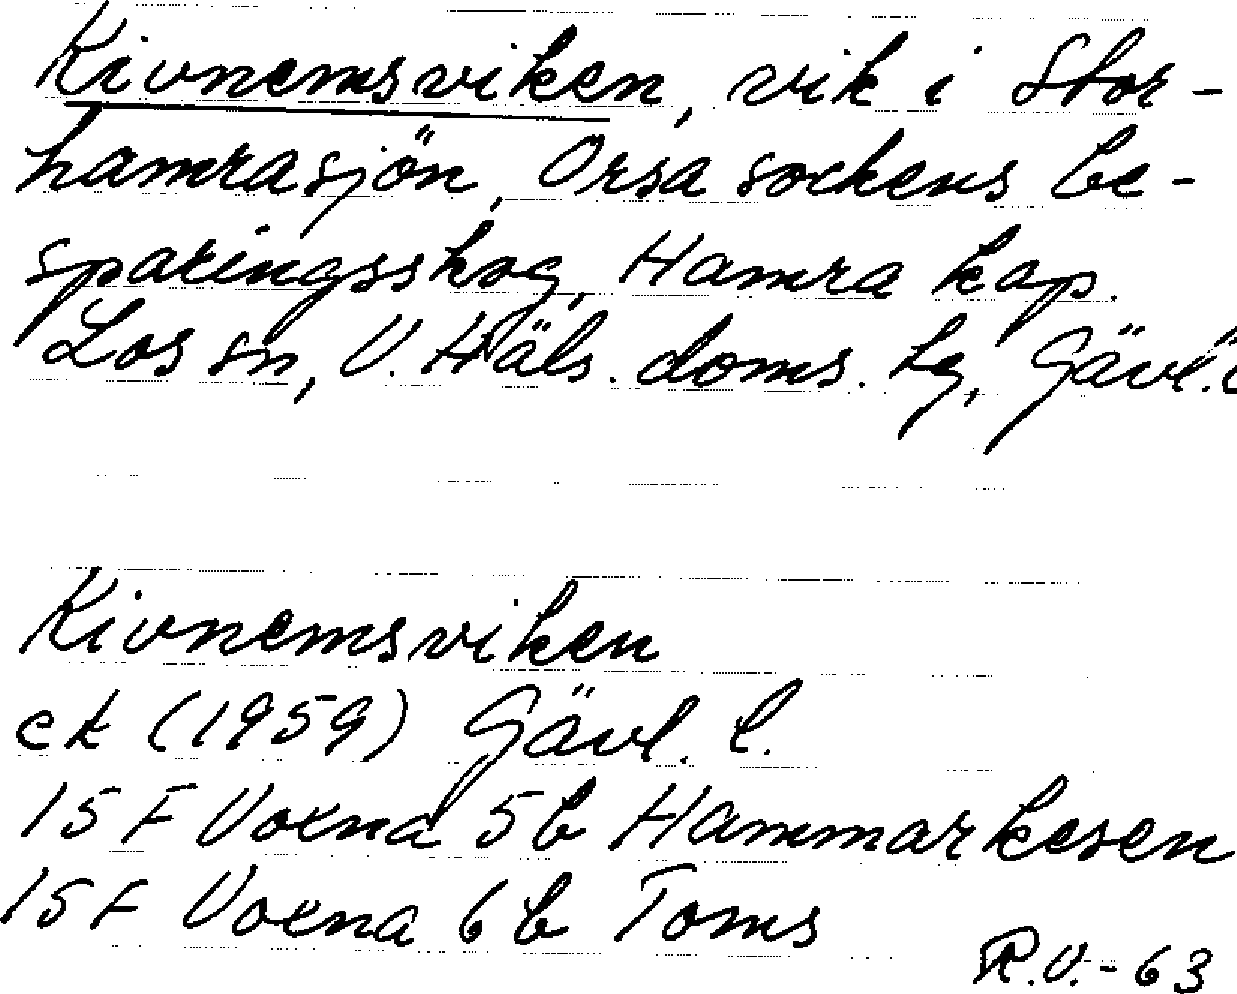 Kivnemsviken, vik i Stor-
hamrasjön, Orsa sockens be-
sparingsskog, Hamra kap.
Los sn, V. Häls. doms. tg, Gävl. l
Kivnemsviken
ek (1959) Gävl. l.
15 F Voxna 5b Hammarkesen
15 F Voxna 6b Toms
R.V.-63